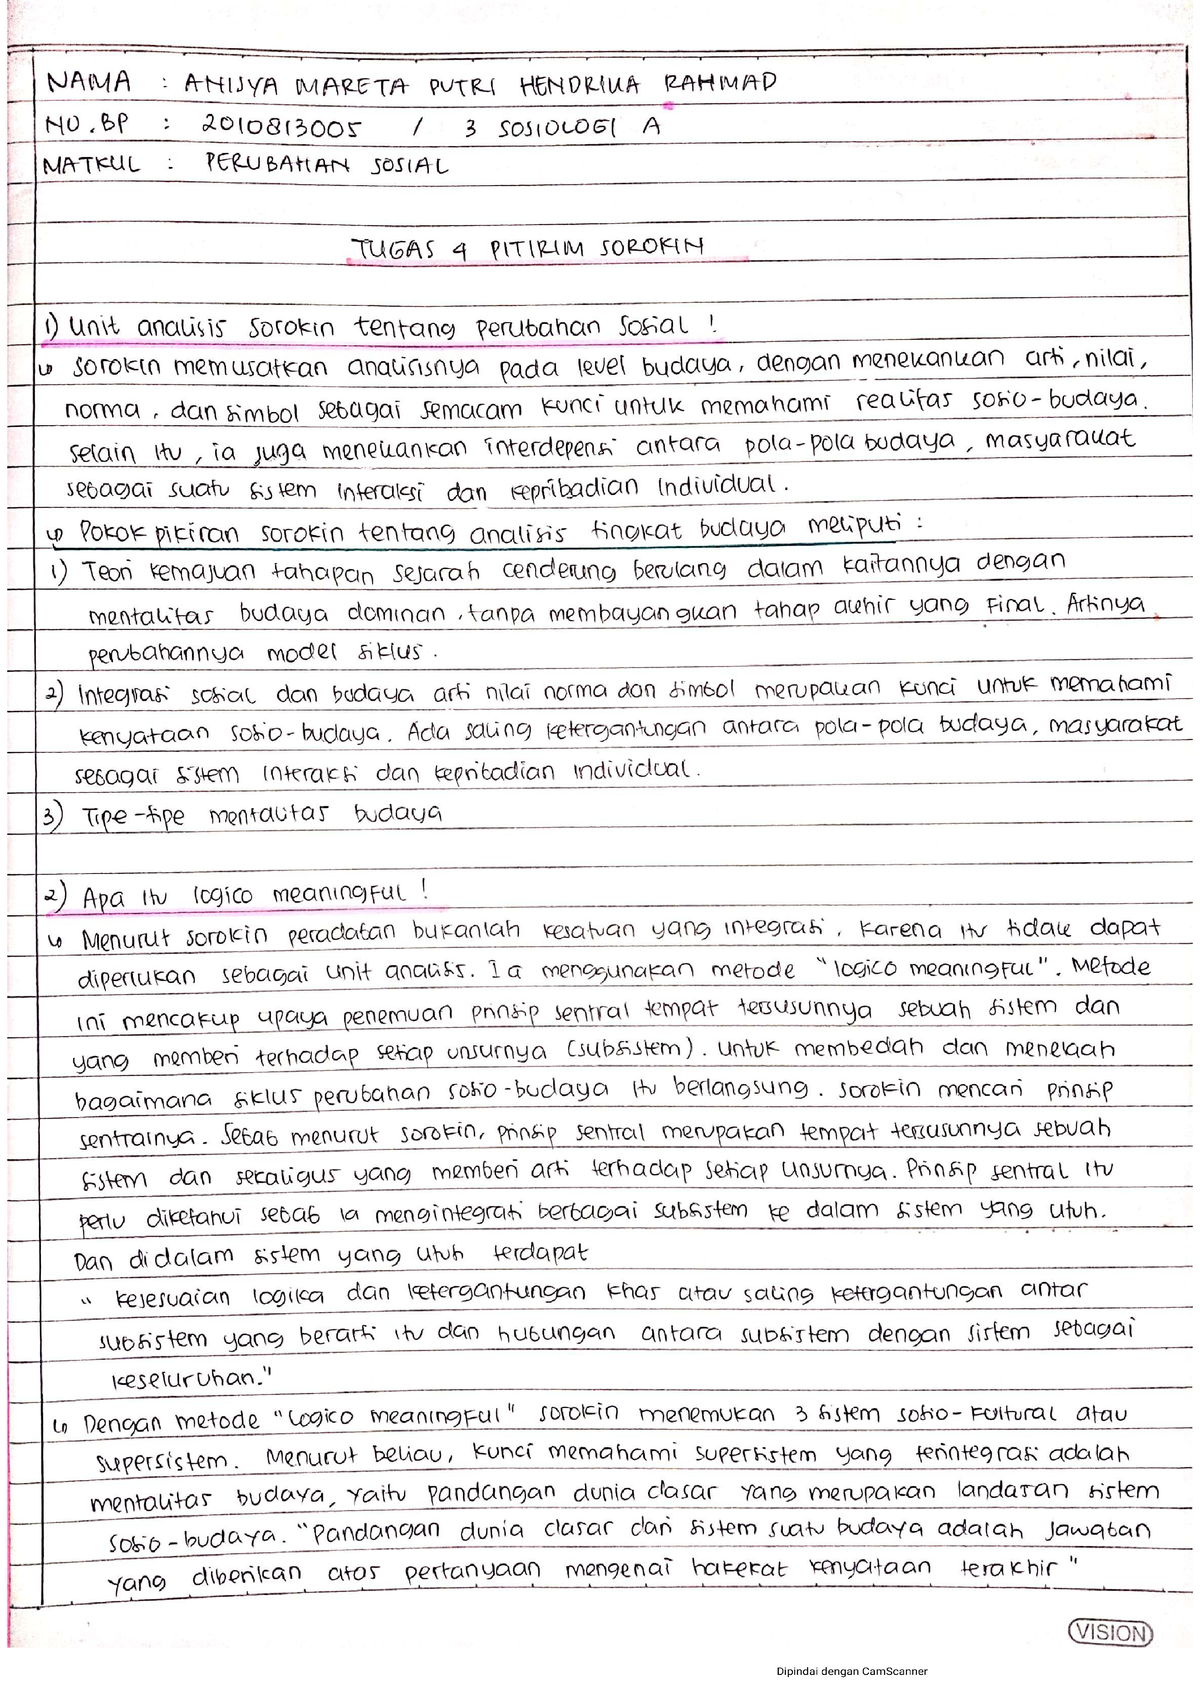 NAMA : ANISYA MARETA PUTRI HENDRIKA RAHMAD
NO.BP : 2010813005 / 3 SOSIOLOGI A
MATKUL : PERUBAHAN SOSIAL
TUGAS 4 PITIRIM SOROKIN
1) Unit analisis Sorokin tentang perubahan Sosial !
↳ Sorokin memusatkan analisisnya pada level budaya, dengan menekankan arti, nilai,
norma, dan simbol sebagai semacam kunci untuk memahami realitas sosio-budaya.
Selain itu, ia juga menekankan interdepensi antara pola-pola budaya, masyarakat
sebagai suatu sistem interaksi dan kepribadian individual.
↳ Pokok pikiran Sorokin tentang analisis tingkat budaya meliputi :
1) Teori kemajuan tahapan sejarah cenderung berulang dalam kaitannya dengan
mentalitas budaya dominan, tanpa membayangkan tahap akhir yang Final. Artinya
perubahannya model siklus.
2) Integrasi sosial dan budaya arti nilai norma dan simbol merupakan kunci untuk memahami
kenyataan sosio-budaya. Ada saling ketergantungan antara pola-pola budaya, masyarakat
sebagai sistem interaksi dan kepribadian individual.
3) Tipe-tipe mentalitas budaya
2) Apa itu logico meaningful !
↳ Menurut Sorokin peradatan bukanlah kesatuan yang integrasi, karena itu tidak dapat
diperlukan sebagai unit analisis. Ia menggunakan metode "logico meaningful". Metode
ini mencakup upaya penemuan prinsip sentral tempat tersusunnya sebuah sistem dan
yang memberi terhadap setiap unsurnya (subsistem). Untuk membedah dan menelaah
bagaimana siklus perubahan sosio-budaya itu berlangsung. Sorokin mencari prinsip
sentralnya. Sebab menurut Sorokin, prinsip sentral merupakan tempat tersusunnya sebuah
sistem dan sekaligus yang memberi arti terhadap setiap unsurnya. Prinsip sentral itu
perlu diketahui sebab ia mengintegrasi berbagai subsistem ke dalam sistem yang utuh.
Dan didalam sistem yang utuh terdapat
" kesesuaian logika dan ketergantungan khas atau saling ketergantungan antar
subsistem yang berarti itu dan hubungan antara subsistem dengan sistem sebagai
keseluruhan."
↳ Dengan metode "Logico meaningful" Sorokin menemukan 3 sistem sosio-kultural atau
supersistem. Menurut beliau, kunci memahami supersistem yang terintegrasi adalah
mentalitas budaya, yaitu pandangan dunia dasar yang merupakan landasan sistem
sosio-budaya. "Pandangan dunia dasar dari sistem suatu budaya adalah jawaban
yang diberikan atas pertanyaan mengenai hakekat kenyataan terakhir"
VISION
Dipindai dengan CamScanner